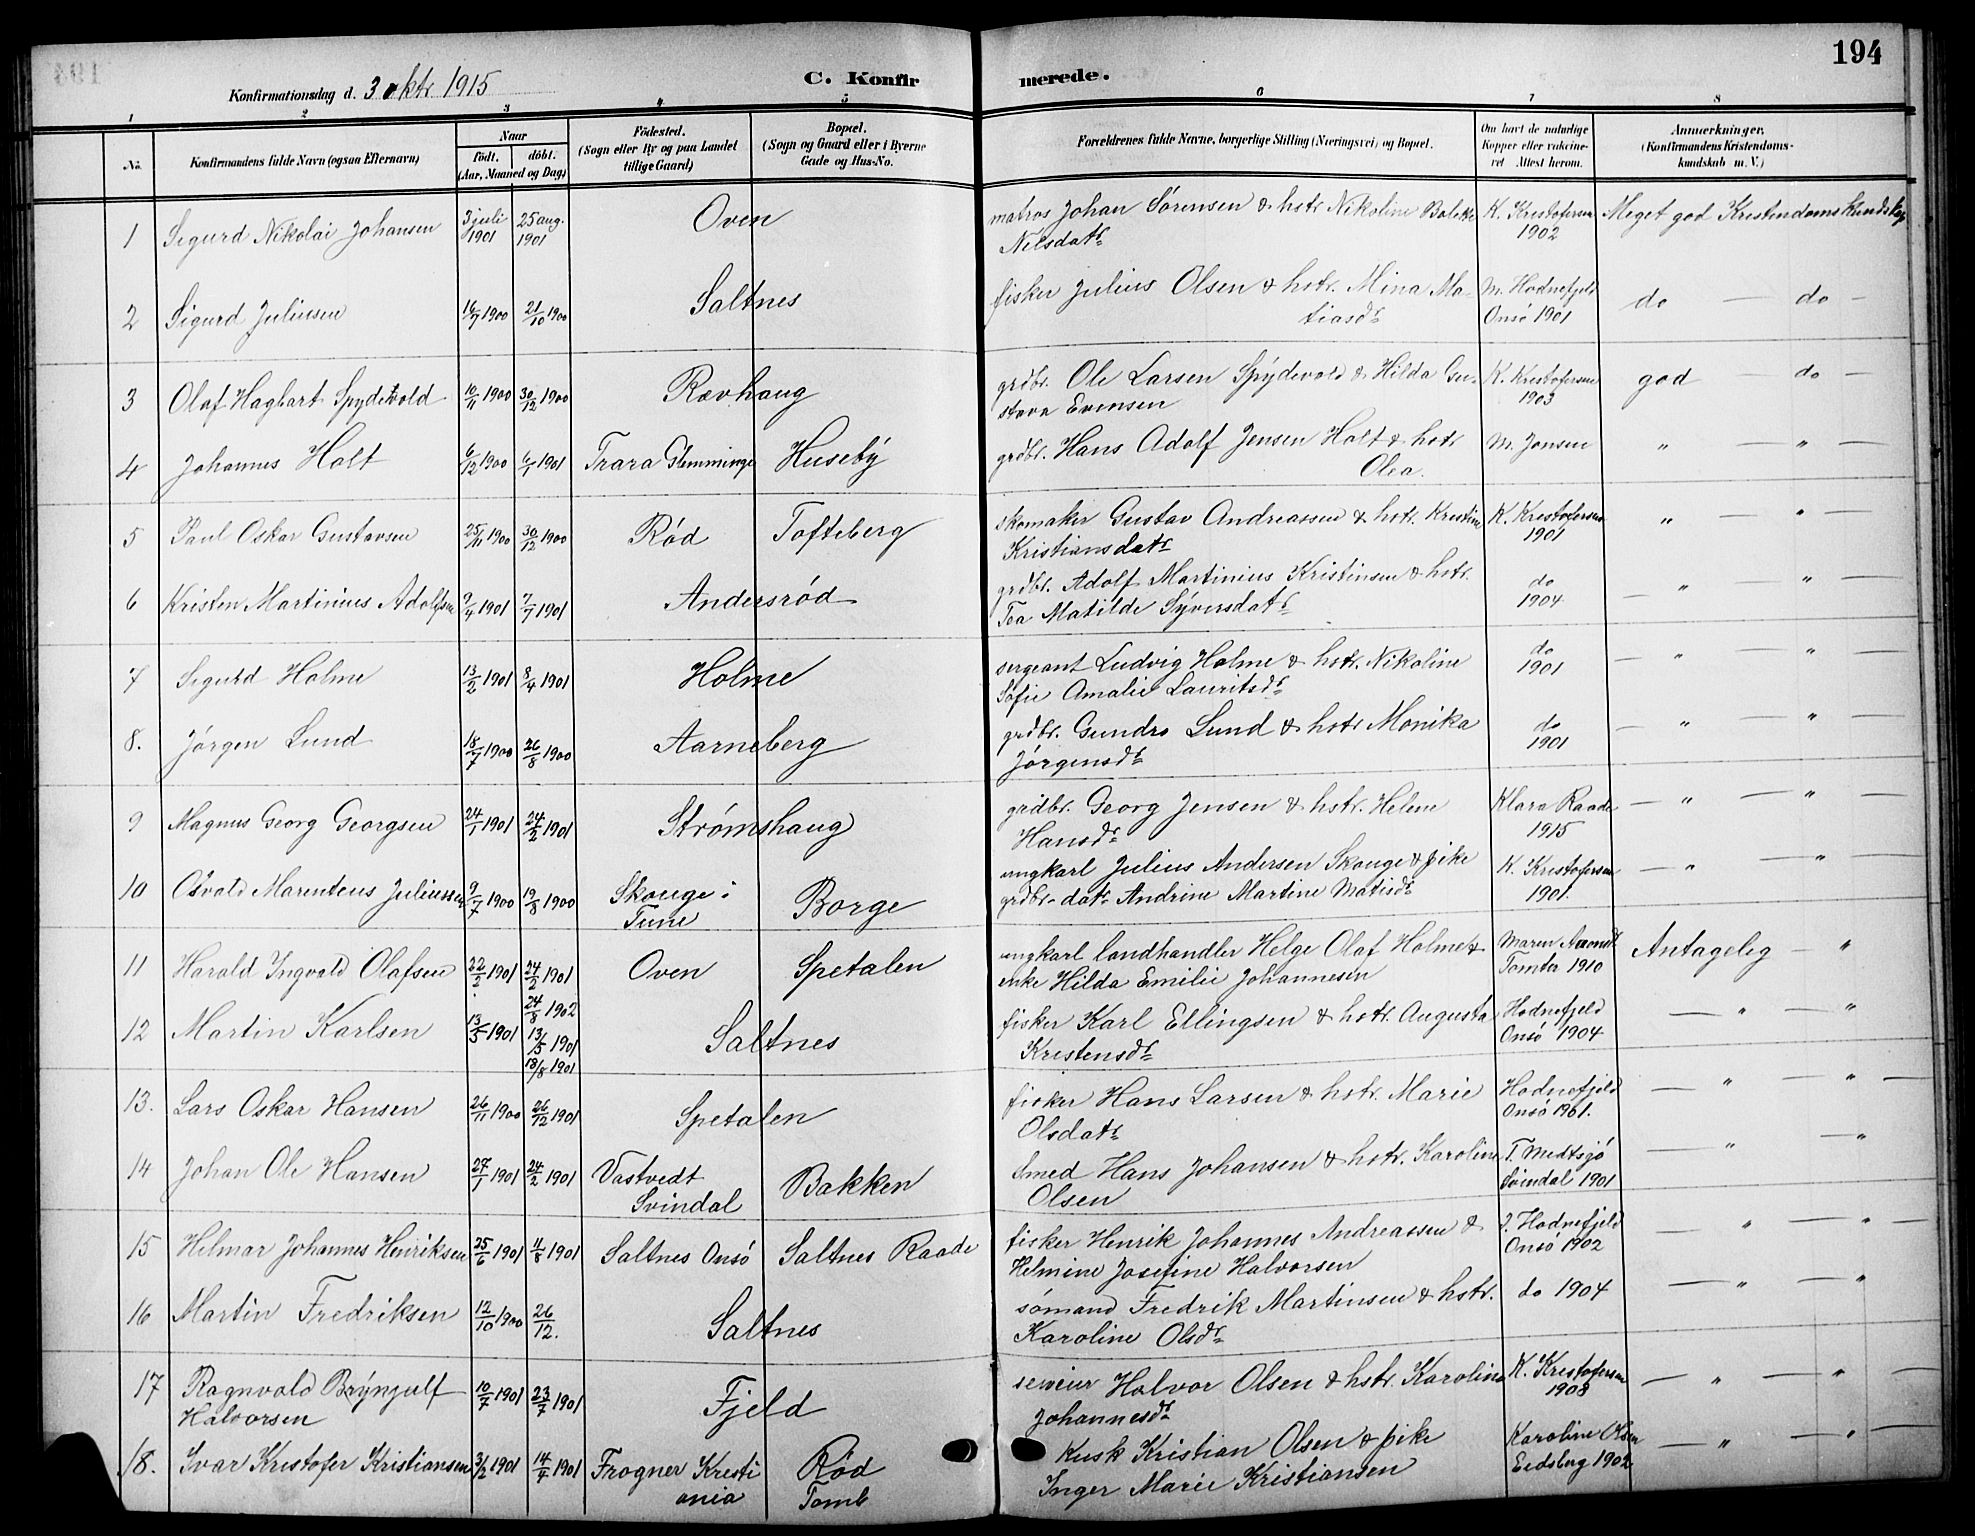 194
Konfirmationsdag d. 3 oktr 1915
C. Konfirmerede.
1 2 3 4 5 6 7 8
No. Konfirmandens fulde Navn (ogsaa Efternavn) Naar födt. döbt. (Aar, Maaned og Dag) Födested. (Sogn eller By og paa Landet tillige Gaard) Bopæl. (Sogn og Gaard eller i Byerne Gade og Hus-No. Forældrenes fulde Navne, borgerlige Stilling (Næringsvei) og Bopæl. Om havt de naturlige Kopper eller vakcineret Attest herom. Anmærkninger. (Konfirmandens Kristendomskundskab m. V.)
1 Sigurd Nikolai Johansen 3 juli 1901 25 aug. 1901 Oven matros Johan Sørensen & hstr Nikoline Bolette K. Kristofersen 1902 Meget god Kristendomskundskap
Nilsdatr
2 Sigurd Juliussen 16/7 1900 21/10 1900 Saltnes fisker Julius Olsen & hstr. Mina Ma- M. Hodnefjeld Onsö 1901 do — do —
tiasdr
3 Olaf Hagbart Spydevold 10/11 1900 30/12 1900 Rævhaug grdbr. Ole Larsen Spydevold & Hilda Gu- K. Kristofersen 1903 god — do —
stava Evensen
4 Johannes Holt 6/12 1900 6/1 1901 Trara Glemminge Huseby grdbr. Hans Adolf Jensen Holt & hstr M. Jonsen " — " —
Olea.
5 Paul Oskar Gustavsen 25/11 1900 30/12 1900 Rød Tofteberg skomaker Gustav Andreassen & hstr. Kristine K. Kristofersen 1901 " — " —
Kristiansdatr
6 Kristen Martinius Adolfsen 9/4 1901 7/7 1901 Andersrød grdbr. Adolf Martinius Kristinsen & hstr. do 1904 — " " —
Tea Matilde Syversdatr
7 Sigurd Holme 13/2 1901 8/4 1901 Holme sergeant Ludvig Holme & hstr. Nikoline do 1901 — " — " —
Sofie Amalie Lauritsdr
8. Jørgen Lund 18/7 1900 26/8 1900 Aarneberg grdbr. Gundro Lund & hstr Monika do 1901 — " " —
Jørgensdr
9 Magnus Georg Georgsen 24/1 1901 24/2 1901 Strømshaug grdbr. Georg Jensen & hstr. Helene Klara Raade 1915 — " — " —
Hansdr
10 Osvald Marenteus Juliussen 9/7 1900 19/8 1900 Skouge i Tune Borge ungkarl Julius Andersen Skouge & pike K. Kristofersen 1901. — " — "
grdbr-datr Andrine Martine Matisdr
11 Harald Ingvald Olafsen 22/2 1901 24/2 1901 Oven Spetalen ungkarl landhandler Helge Olaf Holme & Maren Tomter 1910 Antagelig — "
24/8 1902 enke Hilda Emilie Johannesen
12 Martin Karlsen 13/5 1901 13/5 1901 18/8 1901 Saltnes fisker Karl Ellingsen & hstr. Augusta Hodnefjeld Onsö 1904 — " — "
Kristensdr
13. Lars Oskar Hansen 26/11 1900 26/12 1901 Spetalen fisker Hans Larsen & hstr. Marie Hodnefjeld Onsö 1901. — " — " —
Olsdatr
14 Johan Ole Hansen 27/1 1901 24/2 1901 Vastvedt Svindal Bakken Smed Hans Johansen & hstr. Karoline T. Medtsjö Svindal 1901 — " — "
Olsen
15 Hilmar Johannes Henriksen 25/6 1901 11/8 1901 Saltnes Onsö Saltnes Raade fisker Henrik Johannes Andreassen & Hodnefjeld Onsö 1902 — " — " —
Helmine Josefine Halvorsen
16 Martin Fredriksen 12/10 1900 26/12. Saltnes sømand Fredrik Martinsen & hstr. do 1904 — " — "
Karoline Olsdr
17 Ragnvald Brynjulf Halvorsen 10/7 1901 23/7 1901 Fjeld Halvor Olsen & hstr. Karoline K. Kristofersen 1908 — " — " —
Johannesdr
18. Ivar Kristofer Kristiansen 3/2 1901 14/4 1901 Frogner Kristiania Rød Tomb Kusk Kristian Olsen & pike Karoline Olsen Eidsberg 1902 — " — " —
Inger Marie Kristiansen